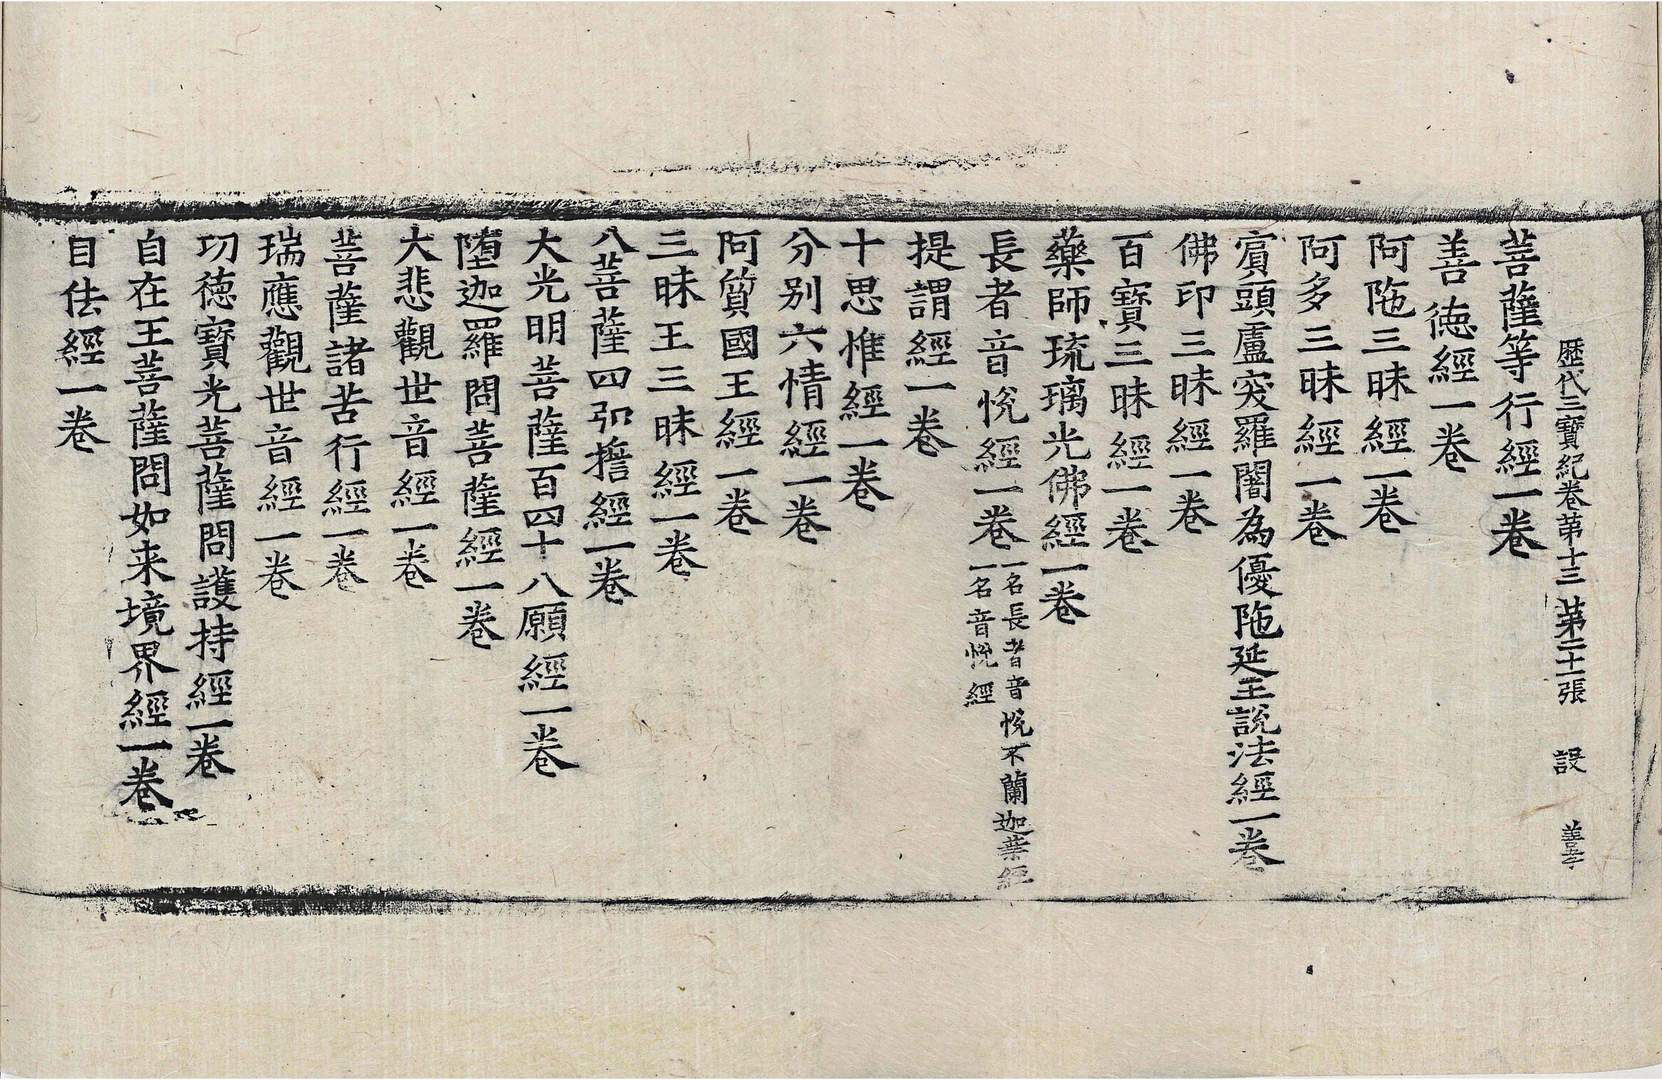 歷代三寶紀卷第十三 第二十張 設 善孝
菩薩等行經一卷
善德經一卷
阿陁三昧經一卷
阿多三昧經一卷
賓頭盧突羅闍為優陁延王說法經一卷
佛印三昧經一卷
百寶三昧經一卷
藥師琉璃光佛經一卷
長者音悅經一卷 一名長者音悅不蘭迦葉經 一名音悅經
提謂經一卷
十思惟經一卷
分別六情經一卷
阿質國王經一卷
三昧王三昧經一卷
八菩薩四弘擔經一卷
大光明菩薩百四十八願經一卷
墮迦羅問菩薩經一卷
大悲觀世音經一卷
菩薩諸苦行經一卷
瑞應觀世音經一卷
功德寶光菩薩問護持經一卷
自在王菩薩問如来境界經一卷
目佉經一卷